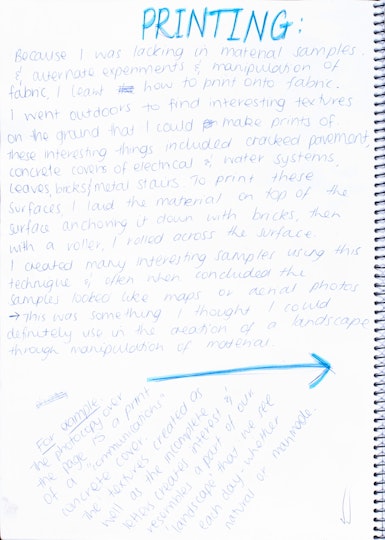 PRINTING:
Because I was lacking in material samples
& alternate experiments & manipulation of
fabric, I learnt how to print onto fabric.
I went outdoors to find interesting textures
on the ground that I could make prints of.
these interesting things included cracked pavement,
concrete covers of electrical & water systems,
leaves, bricks/metal stairs. To print these
surfaces, I laid the material on top of the
surface anchoring it down with bricks, then
with a roller, I rolled across the surface.
I created many interesting samples using this
technique & often when concluded the
samples looked like maps or aerial photos
→ This was something I thought I could
definitely use in the creation of a landscape
through manipulation of material.
For example:
the photocopy over
the page is a print
of a "communications"
concrete cover.
The textures created as
well as the incomplete
letters creates interest &
resembles a part of our
landscape that we see
each day - whether
natural or manmade.